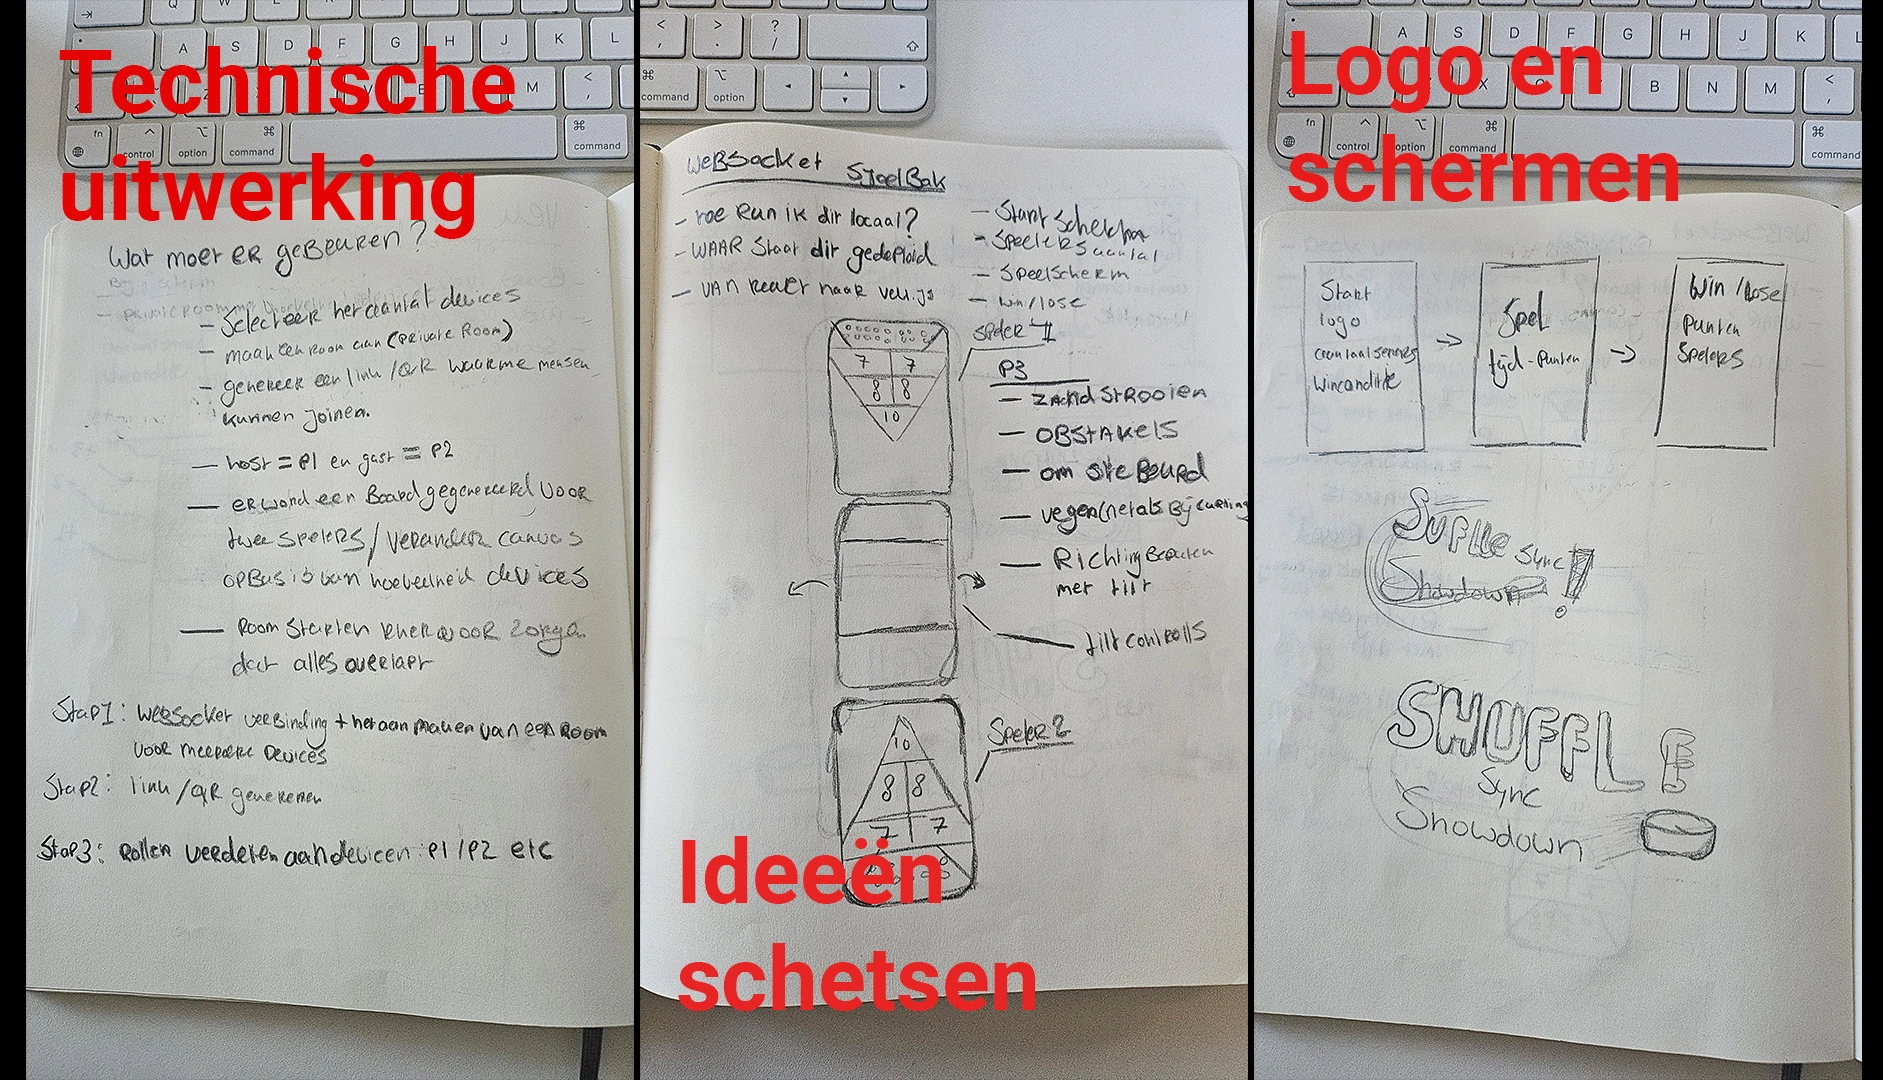 Technische
uitwerking
Wat moet er gebeuren?
- Selecteer het aantal devices
- maak een room aan (private Room)
- genereer een link/QR waarmee mensen
kunnen joinen.
- host = P1 en gast = P2
- er word een Board gegenereerd voor
twee spelers/verander canvas
op Basis van hoeveelheid devices
- Room starten
dat alles overlapt
Stap1: websocket verbinding + het aan maken van een Room
voor meerdere Devices
Stap2: link/QR genereren
Stap3: Rollen verdelen aan devices P1/P2 etc
Websocket Sjoelbak
- hoe Run ik dit locaal?
- WAAR Staat dit gedeploid
- van React naar vue.js
- Start Scherm
- Spelers aantal
- Speelscherm
- win/lose
Speler 1
7 7
8 8
10
P3
- zand strooien
- OBStAKels
- om ste Beurd
- vegen (net als Bij curling
- Richting Bepalen
met tilt
tilt controlls
Speler 2
10
8 8
7 7
Ideeën
schetsen
Logo en
schermen
Start
logo
aantal schermen
Wincanditie
Spel
tijd-Punten
Win/lose
Punten
Spelers
Suflle Sync
Showdown!
SHUFFLE
Sync
Showdown